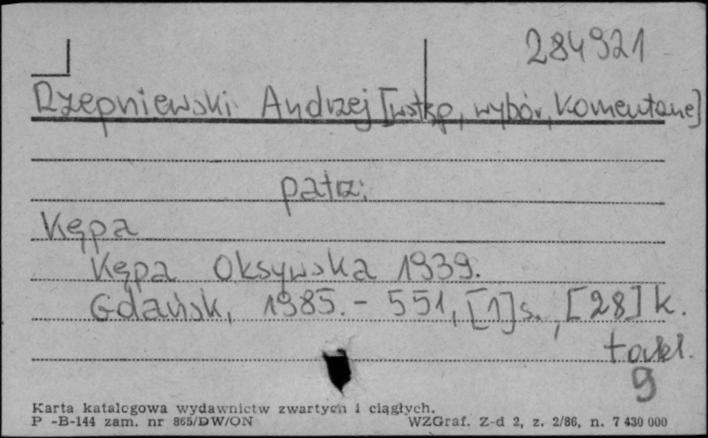 284921
Rzepniewski Andrzej [wstęp, wybór, komentarze]
patrz:
Kępa
Kępa Oksywska 1939.
Gdańsk, 1985. - 551, [1] s., [28] k.
tabl.
9
Karta katalogowa wydawnictw zwartych i ciągłych.
P -B-144 zam. nr 865/DW/ON WZGraf. Z-d 2, z. 2/86, n. 7 430 000